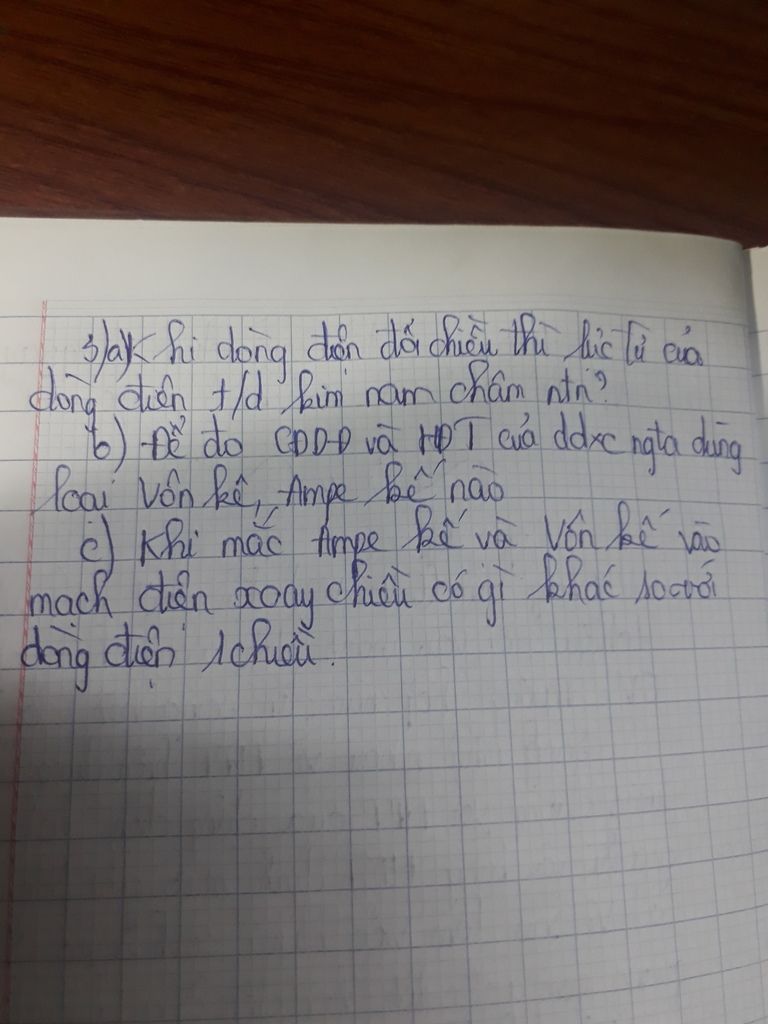 3)a)Khi dòng điện đổi chiều thì lực từ của
dòng điện t/d kim nam châm ntn?
b) Để đo CDDĐ và HĐT của ddxc ngta dùng
loại vôn kế, Ampe kế nào
c) Khi mắc Ampe kế và Vôn kế vào
mạch điện xoay chiều có gì khác so với
dòng điện 1 chiều.